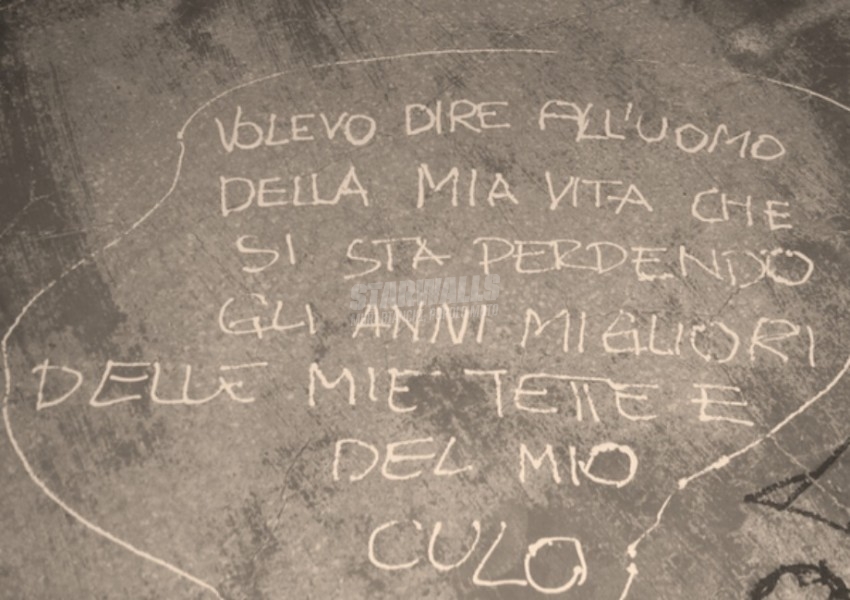 VOLEVO DIRE ALL'UOMO
DELLA MIA VITA CHE
SI STA PERDENDO
STAR WALLS
GLI ANNI MIGLIORI
DELLE MIE TETTE E
DEL MIO
CULO